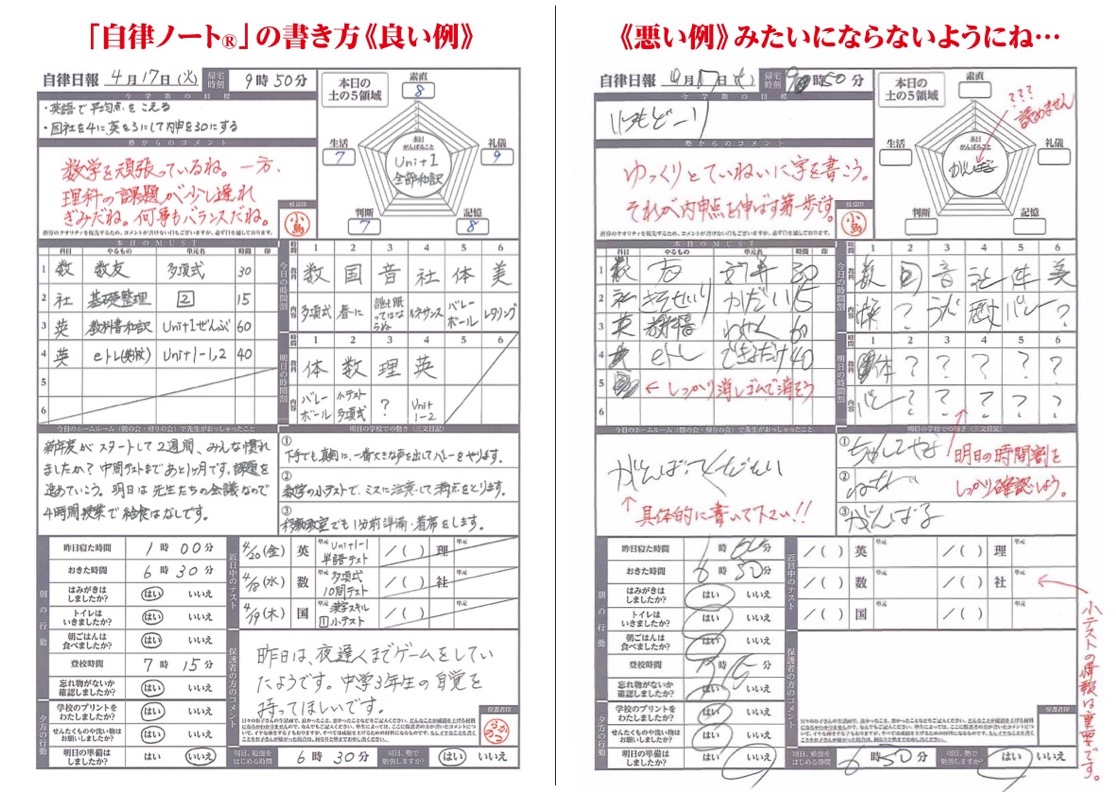 「自律ノート®」の書き方《良い例》
自律日報 4月17日(火) 帰宅時刻 9時50分
今学期の目標
・英語で平均点をこえる
・国社を4に英を3にして内申を30にする
塾からのコメント
数学を頑張っているね。一方、
理科の課題が少し遅れ
ぎみだね。何事もバランスだね。
検見印
小島
本日の
土の5領域
素直
8
生活
7
礼儀
9
判断
7
記憶
8
本日
がんばること
Unit1
全部和訳
本日のMUST
科目 やるもの 単元名 時間 印
1 数 数友 多項式 30
2 社 基礎整理 2 15
3 英 教科書和訳 Unit1ぜんぶ 60
4 英 eトレ(英検) Unit1-1,2 40
5
6
今日の時間割
時間 1 2 3 4 5 6
教科 数 国 音 社 体 美
内容 多項式 春に 誰も眠ってはならぬ ルネサンス バレーボール レタリング
明日の時間割
時間 1 2 3 4 5 6
教科 体 数 理 英
内容 バレーボール 小テスト多項式 ? Unit1-2
今日のホームルーム(朝の会・帰りの会)で先生がおっしゃったこと
新年度がスタートして2週間、みんな慣れ
ましたか?中間テストまであと1ヶ月です。課題を
進めていこう。明日は先生たちの会議なので
4時間授業で給食はなしです。
明日の学校での動き(三文日記)
①
下手でも真剣に、一番大きな声を出してバレーをやります。
②
数学の小テストで、ミスに注意して満点をとります。
③
移動教室でも1分前準備・着席をします。
朝の行動
昨日寝た時間 1時00分
おきた時間 6時30分
はみがきはしましたか? はい いいえ
トイレはいきましたか? はい いいえ
朝ごはんは食べましたか? はい いいえ
登校時間 7時15分
忘れ物がないか確認しましたか? はい いいえ
夕方の行動
学校のプリントをわたしましたか? はい いいえ
せんたくものや洗い物はお願いしましたか? はい いいえ
明日の準備はしましたか? はい いいえ
近日中のテスト
4/20(金) 英 単元 Unit1-1 単語テスト /( ) 理 単元
4/18(水) 数 単元 多項式 10問テスト /( ) 社 単元
4/19(木) 国 単元 漢字スキル 1 小テスト /( )
保護者の方のコメント
昨日は、夜遅くまでゲームをしてい
たようです。中学3年生の自覚を
持ってほしいです。
保護者印
明日、勉強をはじめる時間 6時30分 明日、塾で勉強しますか? はい いいえ
《悪い例》みたいにならないようにね…
自律日報 月 日( ) 帰宅時刻 時50分
今学期の目標
いつもどーり
塾からのコメント
ゆっくりとていねいに字を書こう。
それが内申点を伸ばす第一歩です。
検見印
小島
本日の
土の5領域
素直
生活
礼儀
判断
記憶
本日
がんばること
がんばる
???
読めません
本日のMUST
科目 やるもの 単元名 時間 印
1 数 友 30
2 社 きそせいり かだい 15
3 英 教科書 わやく 60
4 英 eトレ できるだけ 40
5 ← しっかり消しゴムで消そう
6
今日の時間割
時間 1 2 3 4 5 6
教科 数 国 音 社 体 美
内容 ? うた 歴史 バレー ?
明日の時間割
時間 1 2 3 4 5 6
教科 体 ? ? ? ? ?
内容 バレー ? ? ? ? ?
明日の時間割を
しっかり確認しよう。
今日のホームルーム(朝の会・帰りの会)で先生がおっしゃったこと
がんばってください
↑具体的に書いて下さい!!
明日の学校での動き(三文日記)
①
②
③ がんばる
朝の行動
昨日寝た時間 時 分
おきた時間 6時30分
はみがきはしましたか? はい いいえ
トイレはいきましたか? はい いいえ
朝ごはんは食べましたか? はい いいえ
登校時間 7時15分
忘れ物がないか確認しましたか? はい いいえ
夕方の行動
学校のプリントをわたしましたか? はい いいえ
せんたくものや洗い物はお願いしましたか? はい いいえ
明日の準備はしましたか? はい いいえ
近日中のテスト
/( ) 英 単元 /( ) 理 単元
/( ) 数 単元 /( ) 社 単元
/( ) 国 単元
小テストの情報は重要です。
保護者の方のコメント
保護者印
明日、勉強をはじめる時間 6時50分 明日、塾で勉強しますか? はい いいえ